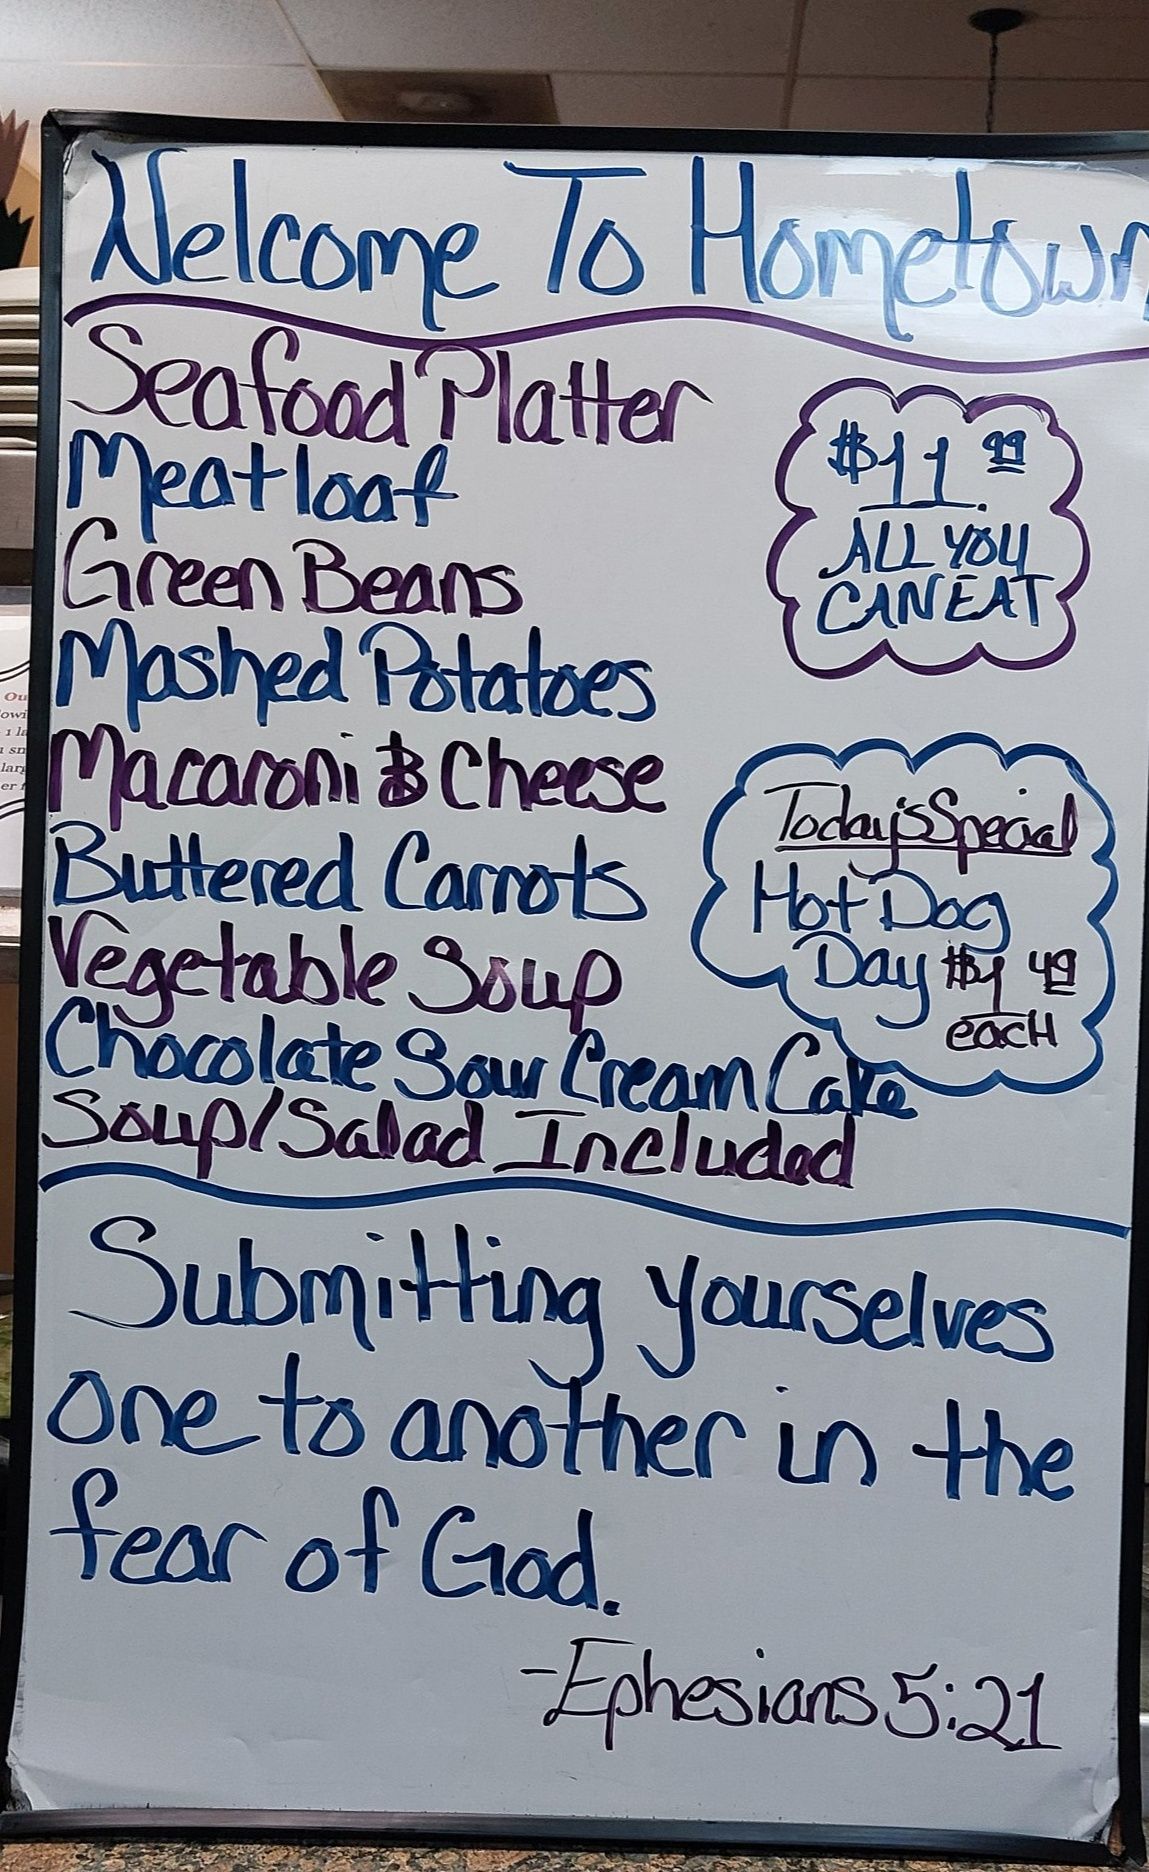 Welcome To Hometown
Seafood Platter
Meatloaf
Green Beans
Mashed Potatoes
Macaroni & Cheese
Buttered Carrots
Vegetable Soup
Chocolate Sour Cream Cake
Soup/Salad Included
$11.99
ALL YOU
CAN EAT
Today's Special
Hot Dog
Day $1.49
each
Submitting yourselves
one to another in the
fear of God.
-Ephesians 5:21